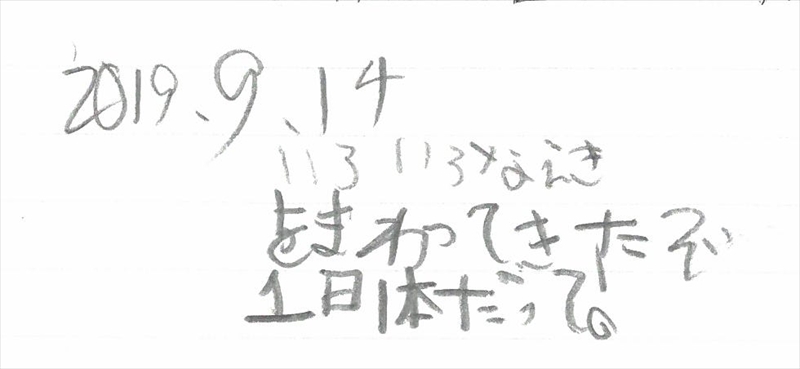 2019、9、14
いろいろなえき
をまわってきたぞ
1日休だって。